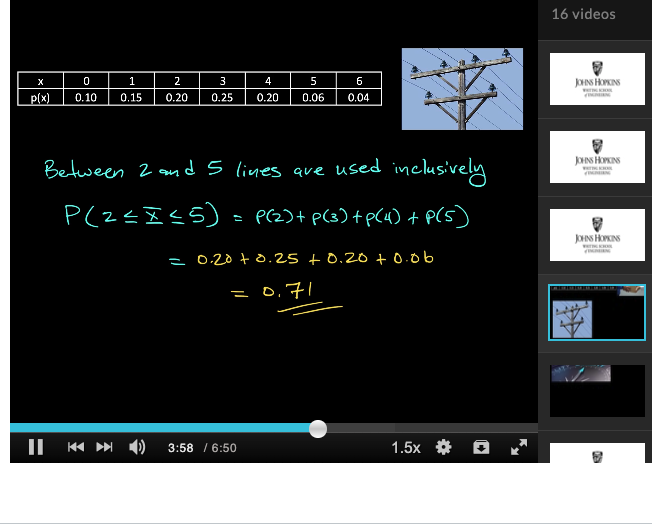 16 videos
x 0 1 2 3 4 5 6
p(x) 0.10 0.15 0.20 0.25 0.20 0.06 0.04
Between 2 and 5 lines are used inclusively
P(2 ≤ X ≤ 5) = P(2) + P(3) + P(4) + P(5)
= 0.20 + 0.25 + 0.20 + 0.06
= 0.71
3:58 / 6:50
1.5x
JOHNS HOPKINS
WHITING SCHOOL
of ENGINEERING
JOHNS HOPKINS
WHITING SCHOOL
of ENGINEERING
JOHNS HOPKINS
WHITING SCHOOL
of ENGINEERING